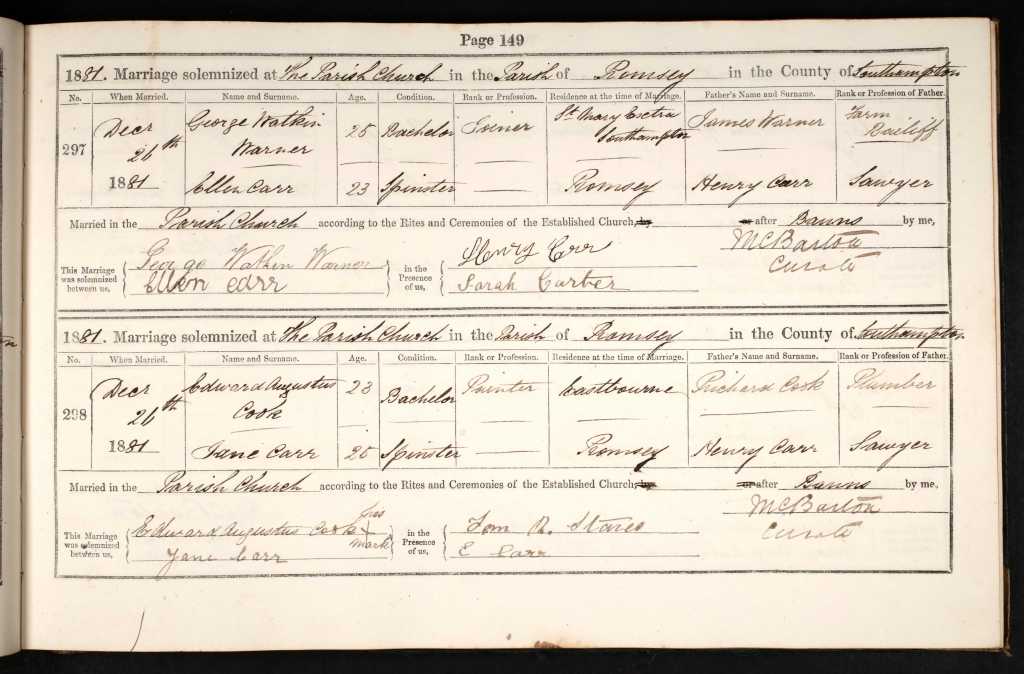 Page 149
1881. Marriage solemnized at The Parish Church in the Parish of Romsey in the County of Southampton
No. When Married. Name and Surname. Age. Condition. Rank or Profession. Residence at the time of Marriage. Father's Name and Surname. Rank or Profession of Father.
297 Decr 26th 1881 George Watkin Warner 25 Bachelor Joiner St Mary Extra Southampton James Warner Farm Bailiff
Ellen Carr 23 Spinster Romsey Henry Carr Sawyer
Married in the Parish Church according to the Rites and Ceremonies of the Established Church, by or after Banns by me,
McBarton
Curate
This Marriage was solemnized between us, George Watkin Warner
Ellen Carr
in the Presence of us, Henry Carr
Sarah Carter
1881. Marriage solemnized at The Parish Church in the Parish of Romsey in the County of Southampton
No. When Married. Name and Surname. Age. Condition. Rank or Profession. Residence at the time of Marriage. Father's Name and Surname. Rank or Profession of Father.
298 Decr 26th 1881 Edward Augustus Cook 23 Bachelor Painter Eastbourne Richard Cook Plumber
Jane Carr 25 Spinster Romsey Henry Carr Sawyer
Married in the Parish Church according to the Rites and Ceremonies of the Established Church, by or after Banns by me,
McBarton
Curate
This Marriage was solemnized between us, Edward Augustus Cook X his mark
Jane Carr
in the Presence of us, Tom R. Stares
E Carr